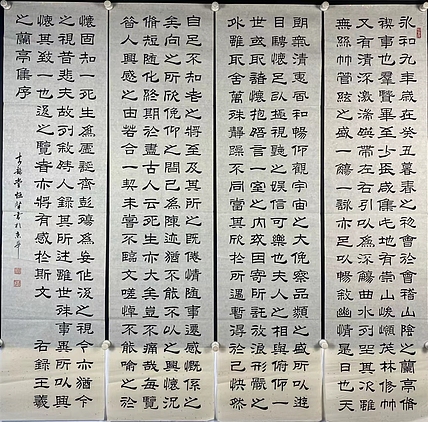 永和九年歲在癸丑暮春之初會於會稽山陰之蘭亭脩
禊事也羣賢畢至少長咸集此地有崇山峻領茂林脩竹
又有清流激湍暎帶左右引以為流觴曲水列坐其次雖
無絲竹管弦之盛一觴一詠亦足以暢敘幽情是日也天
朗氣清惠風和暢仰觀宇宙之大俛察品類之盛所以遊
目騁懷足以極視聽之娛信可樂也夫人之相與俯仰一
世或取諸懷抱悟言一室之內或因寄所託放浪形骸之
外雖取舍萬殊靜躁不同當其欣於所遇暫得於己快然
自足不知老之將至及其所之既倦情隨事遷感慨係之
矣向之所欣俛仰之間已為陳迹猶不能不以之興懷況
脩短隨化終期於盡古人云死生亦大矣豈不痛哉每覽
昔人興感之由若合一契未嘗不臨文嗟悼不能喻之於
懷固知一死生為虛誕齊彭殤為妄作後之視今亦猶今
之視昔悲夫故列敘時人錄其所述雖世殊事異所以興
懷其致一也後之覽者亦將有感於斯文 右錄王羲
之蘭亭集序